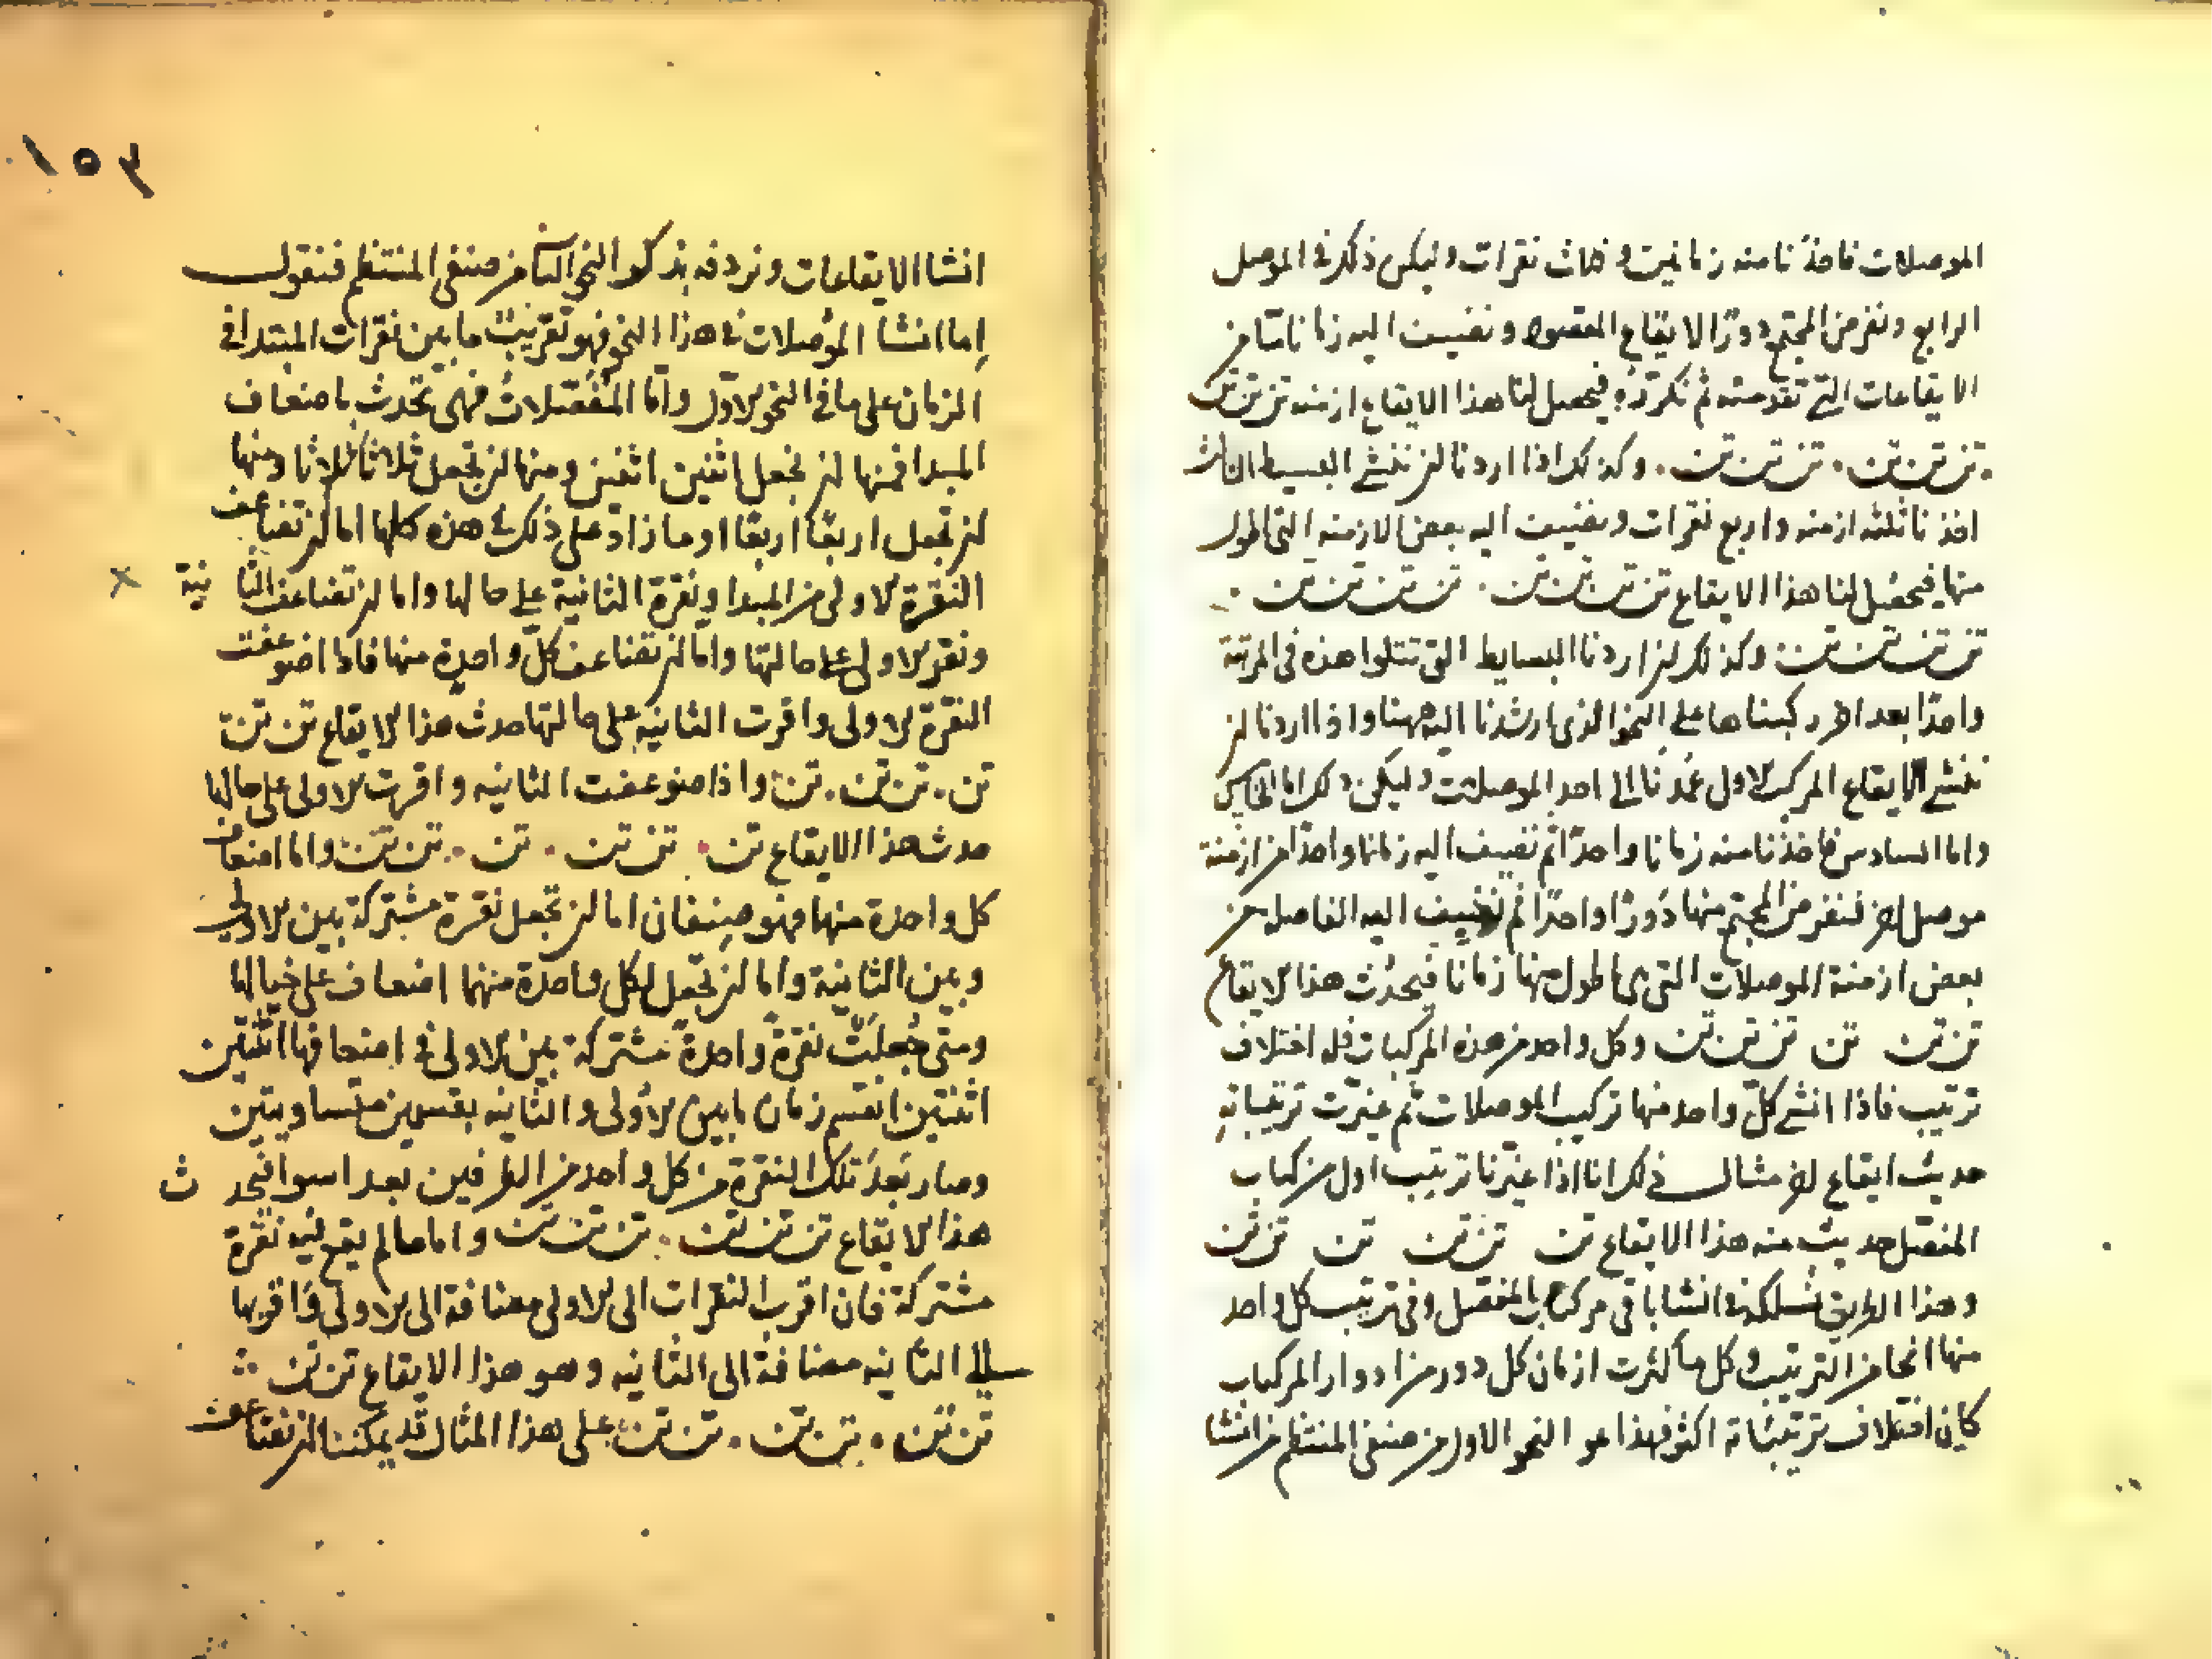 الموصلات فاخذنا منه زمانين وثلاث نقرات وليكن ذلك في الموصل
الرابع ونفرض المجتمع دور الايقاع المقصود ونضيف اليه زمانا ما من
الايقاعات التي تقدمته ثم نكرره فيحصل لنا هذا الايقاع ازمنه تن تن تن
تن تن تن . تن تن تن . وكذلك اذا اردنا ان ننشي البسيط الثالث
اخذنا ثلثه ازمنه واربع نقرات ونضيف اليه بعض الازمنه التي اطول
منها فيحصل لنا هذا الايقاع تن تن تن تن . تن تن تن تن .
تن تن تن تن وكذلك ان اردنا البسايط التي تتلوا هذه في المرتبة
واحدا بعد اخر ركبناها على النحو الذي ارشدنا اليه ههنا واذا اردنا ان
ننشي الايقاع المركب الاول عمدنا الى احد الموصلات وليكن ذلك اما الخامس
واما السادس فاخذنا منه زمانا واحدا ثم نضيف اليه زمانا واحدا من ازمنة
موصل اخر فنفرض المجتمع منها دورا واحدا ثم نضيف اليه الفاصل من
بعض ازمنة الموصلات التي هي اطول منها زمانا فيحدث هذا الايقاع
تن تن تن تن تن تن وكل واحد من هذه المركبات فله اختلاف
ترتيب فاذا انشي كل واحد منها تركيب الموصلات ثم غيرت ترتيباته
حدث ايقاع اخر مثال ذلك انا اذا غيرنا ترتيب اول مركبات
المنفصل حديث منه هذا الايقاع تن تن تن تن تن تن
وهذا الطريق نسلكه في انشا باقي مركبات المنفصل وفي ترتيب كل واحد
منها انحا من الترتيب وكل ما كثرت ازمان كل دور من ادوار المركبات
كان اختلاف ترتيباته اكثر فهذا هو النحو الاول من صنفي المنتظم من انشا
١٥٣
انشا الايقاعات ونردفه بذكر النحو الثاني من صنفي المنتظم فنقول
اما انشا الموصلات في هذا النحو فهو تقريب ما بين نقرات المبتدا في
الزمان على ما في النحو الاول واما المنفصلات فهي تحدث باضعاف
المبدا فمنها ان نجعل اثنين اثنين ومنها ان تجعل ثلاثا ثلاثا ومنها
ان تجعل اربعا اربعا او ما زاد على ذلك في هذه كلها اما ان تضاعف
النقرة الاولى من المبدا ونقرة الثانية على حالها واما ان تضاعف الثانية
ونقر الاولى على حالتها واما ان تضاعف كل واحدة منها فاذا اضوعفت
النقرة الاولى واقرت الثانية على حالتها حدث هذا الايقاع تن تن
تن . تن تن . تن واذا ضوعفت الثانيه واقرت الاولى على حالها
حدث هذا الايقاع تن . تن تن . تن . تن تن واما اضعاف
كل واحدة منها فهو صنفان اما ان تجعل نقرة مشتركة بين الاولى
وبين الثانية واما ان تجعل لكل واحدة منهما اضعاف على حيالها
ومتى جعلت نقرة واحدة مشتركة بين الاولى في اضعافها اثنتين
اثنتين انقسم زمان ما بين الاولى والثانيه بقسمين متساويتين
وصار بعد تلك النقرة من كل واحد من الطرفين بعدا سوا فيحدث
هذا الايقاع تن تن تن . تن تن تن واما ما لم يقع فيه نقرة
مشتركة فان اقرب النقرات الى الاولى مضافة الى الاولى واقربها
الى الثانيه مضافة الى الثانيه وهو هذا الايقاع تن تن
تن تن . تن تن . تن تن على هذا المثال قد يمكننا ان نضاعف